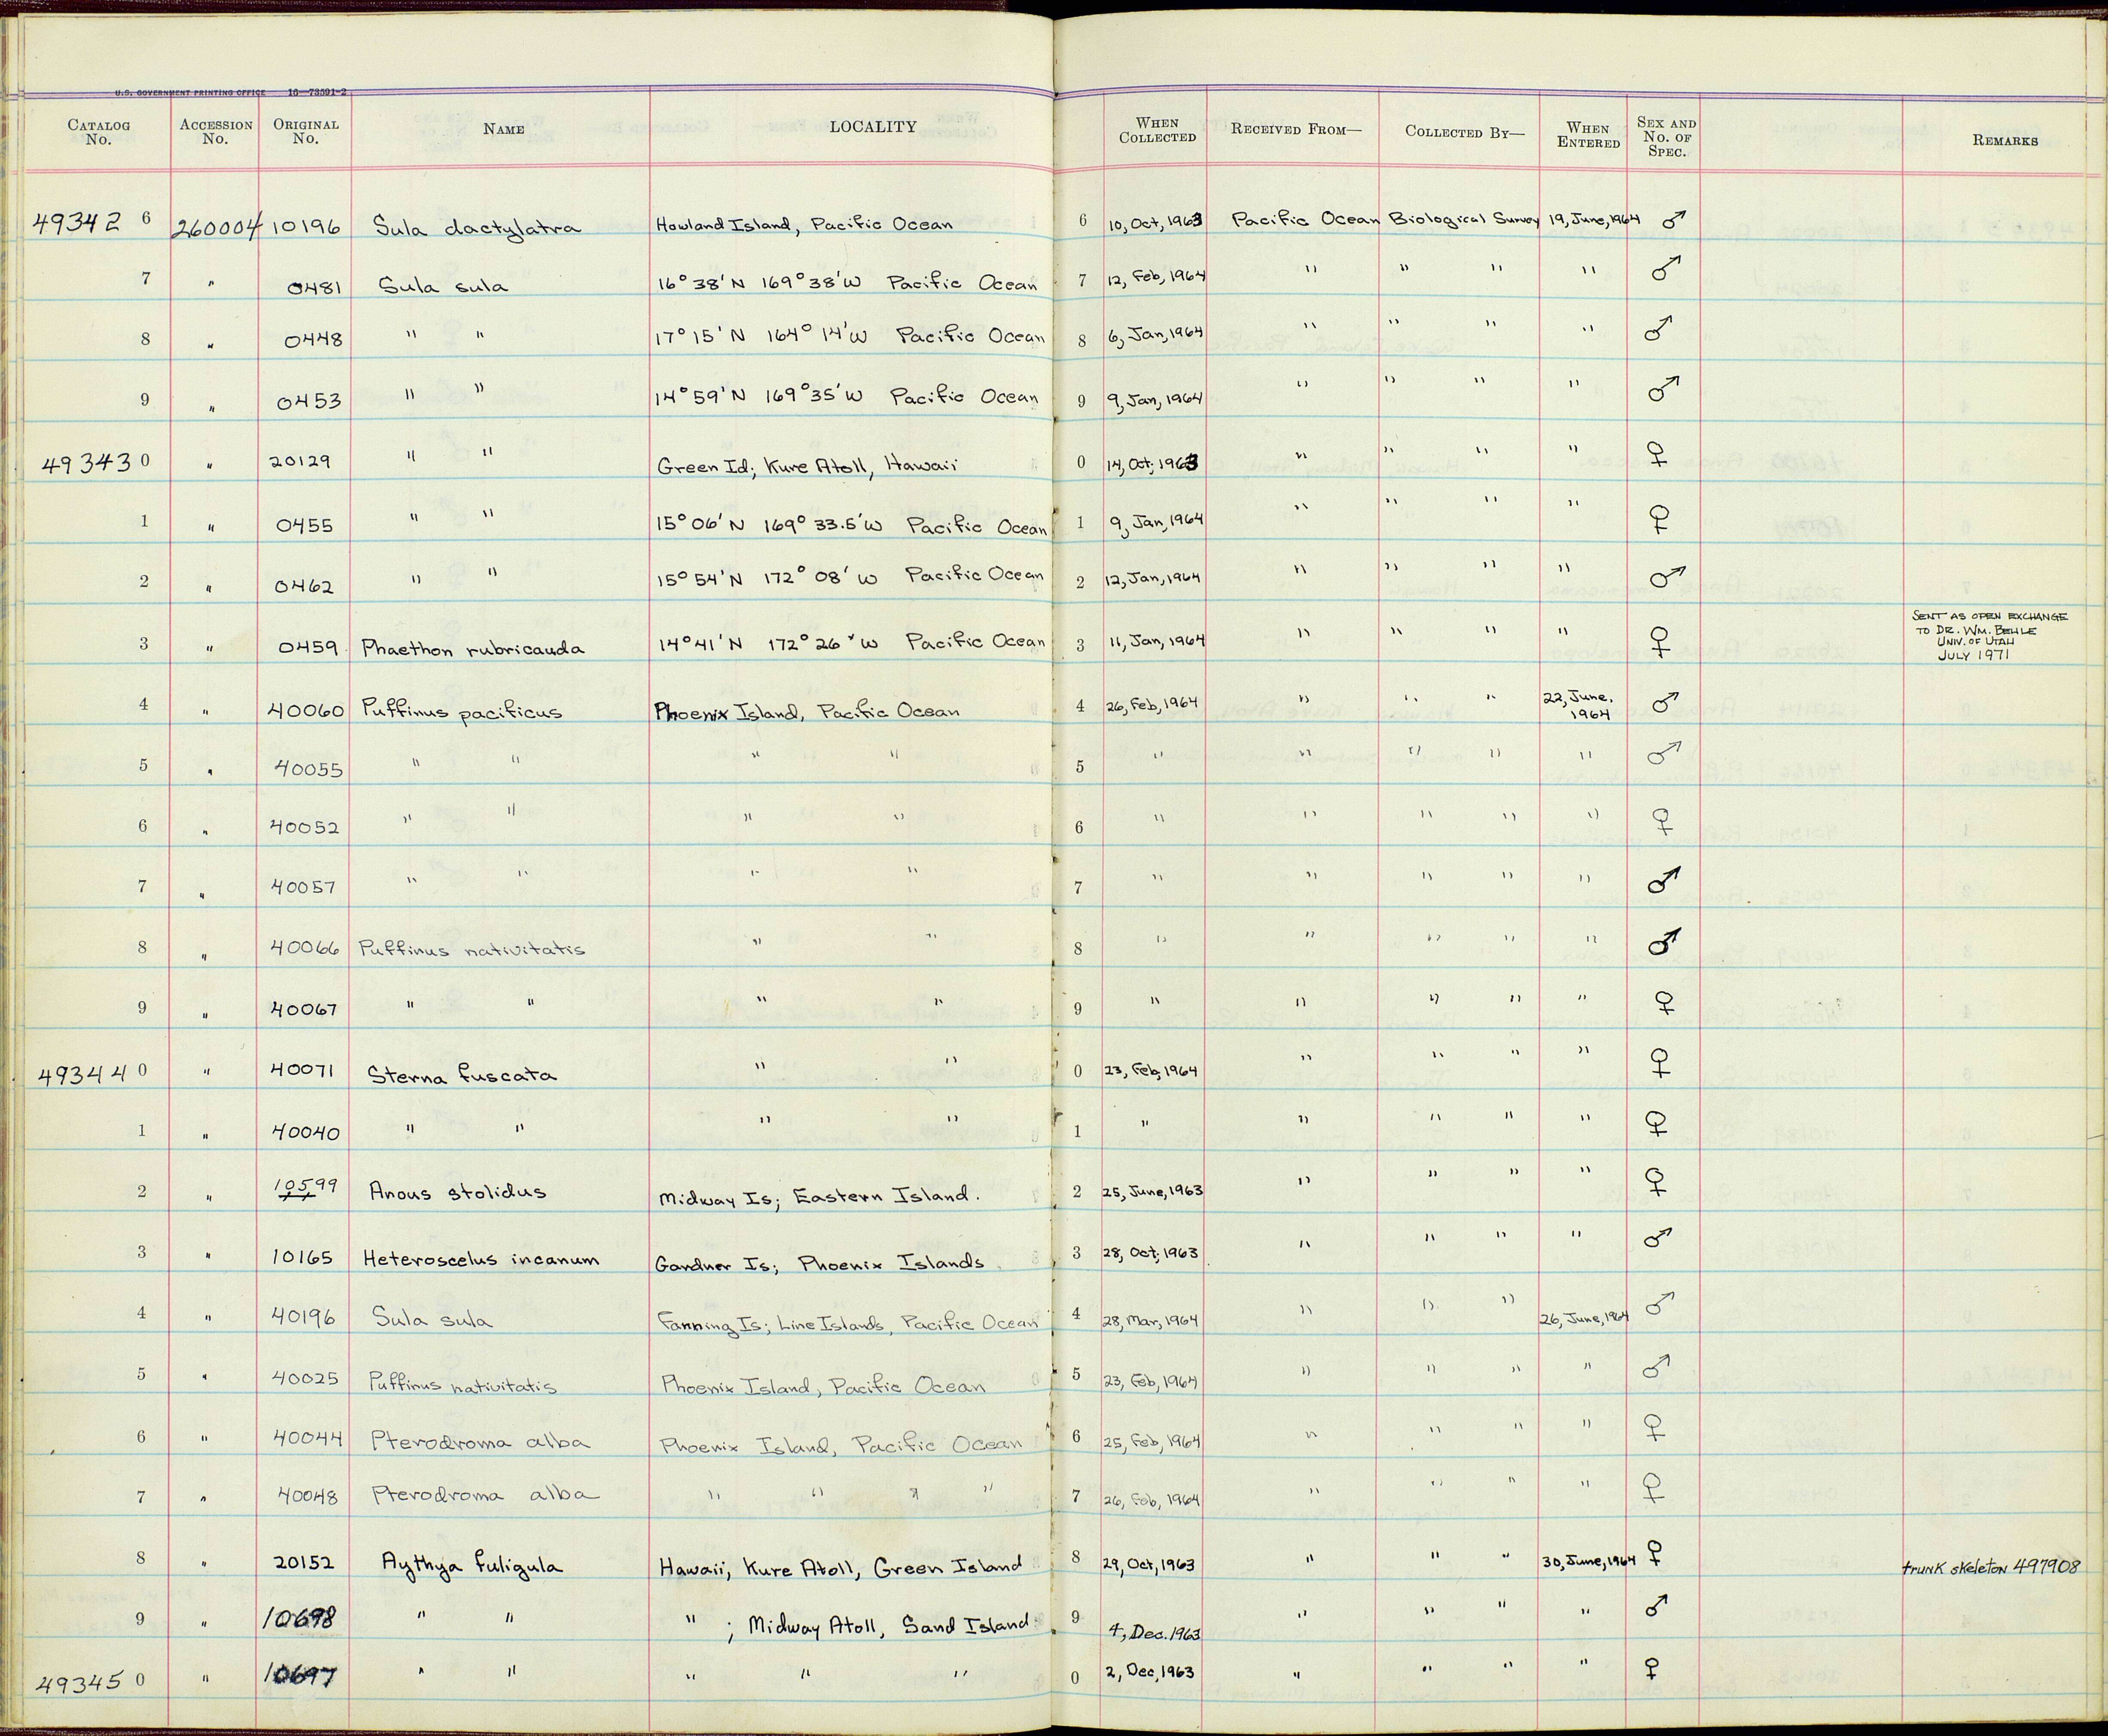 U.S. GOVERNMENT PRINTING OFFICE 16—73591-2
CATALOG No. ACCESSION No. ORIGINAL No. NAME LOCALITY WHEN COLLECTED RECEIVED FROM— COLLECTED BY— WHEN ENTERED SEX AND No. OF SPEC. REMARKS
49342 6 260004 10196 Sula dactylatra Howland Island, Pacific Ocean 6 10, Oct, 1963 Pacific Ocean Biological Survey 19, June, 1964 ♂
7 " 0481 Sula sula 16° 38' N 169° 38' W Pacific Ocean 7 12, Feb, 1964 " " " " ♂
8 " 0448 " " 17° 15' N 164° 14' W Pacific Ocean 8 6, Jan, 1964 " " " " ♂
9 " 0453 " " 14° 59' N 169° 35' W Pacific Ocean 9 9, Jan, 1964 " " " " ♂
49343 0 " 20129 " " Green Id; Kure Atoll, Hawaii 0 14, Oct, 1963 " " " " ♀
1 " 0455 " " 15° 06' N 169° 33.5' W Pacific Ocean 1 9, Jan, 1964 " " " " ♀
2 " 0462 " " 15° 54' N 172° 08' W Pacific Ocean 2 12, Jan, 1964 " " " " ♂
3 " 0459 Phaethon rubricauda 14° 41' N 172° 26' W Pacific Ocean 3 11, Jan, 1964 " " " " ♀ SENT AS OPEN EXCHANGE
TO DR. WM. BEHLE
UNIV. OF UTAH
JULY 1971
4 " 40060 Puffinus pacificus Phoenix Island, Pacific Ocean 4 26, Feb, 1964 " " " 22, June, 1964 ♂
5 " 40055 " " " " 5 " " " " " ♂
6 " 40052 " " " " 6 " " " " " ♀
7 " 40057 " " " " 7 " " " " " ♂
8 " 40066 Puffinus nativitatis " " 8 " " " " " ♂
9 " 40067 " " " " 9 " " " " " ♀
49344 0 " 40071 Sterna fuscata " " 0 23, Feb, 1964 " " " " ♀
1 " 40040 " " " " 1 " " " " " ♀
2 " 10599 Anous stolidus Midway Is; Eastern Island. 2 25, June, 1963 " " " " ♀
3 " 10165 Heteroscelus incanum Gardner Is; Phoenix Islands 3 28, Oct, 1963 " " " " ♂
4 " 40196 Sula sula Fanning Is; Line Islands, Pacific Ocean 4 28, Mar, 1964 " " " 26, June, 1964 ♂
5 " 40025 Puffinus nativitatis Phoenix Island, Pacific Ocean 5 23, Feb, 1964 " " " " ♂
6 " 40044 Pterodroma alba Phoenix Island, Pacific Ocean 6 25, Feb, 1964 " " " " ♀
7 " 40048 Pterodroma alba " " " " 7 26, Feb, 1964 " " " " ♀
8 " 20152 Aythya fuligula Hawaii, Kure Atoll, Green Island 8 29, Oct, 1963 " " " 30, June, 1964 ♀ trunk skeleton 497908
9 " 10698 " " " ; Midway Atoll, Sand Island 9 4, Dec. 1963 " " " " ♂
49345 0 " 10697 " " " " " 0 2, Dec, 1963 " " " " ♀